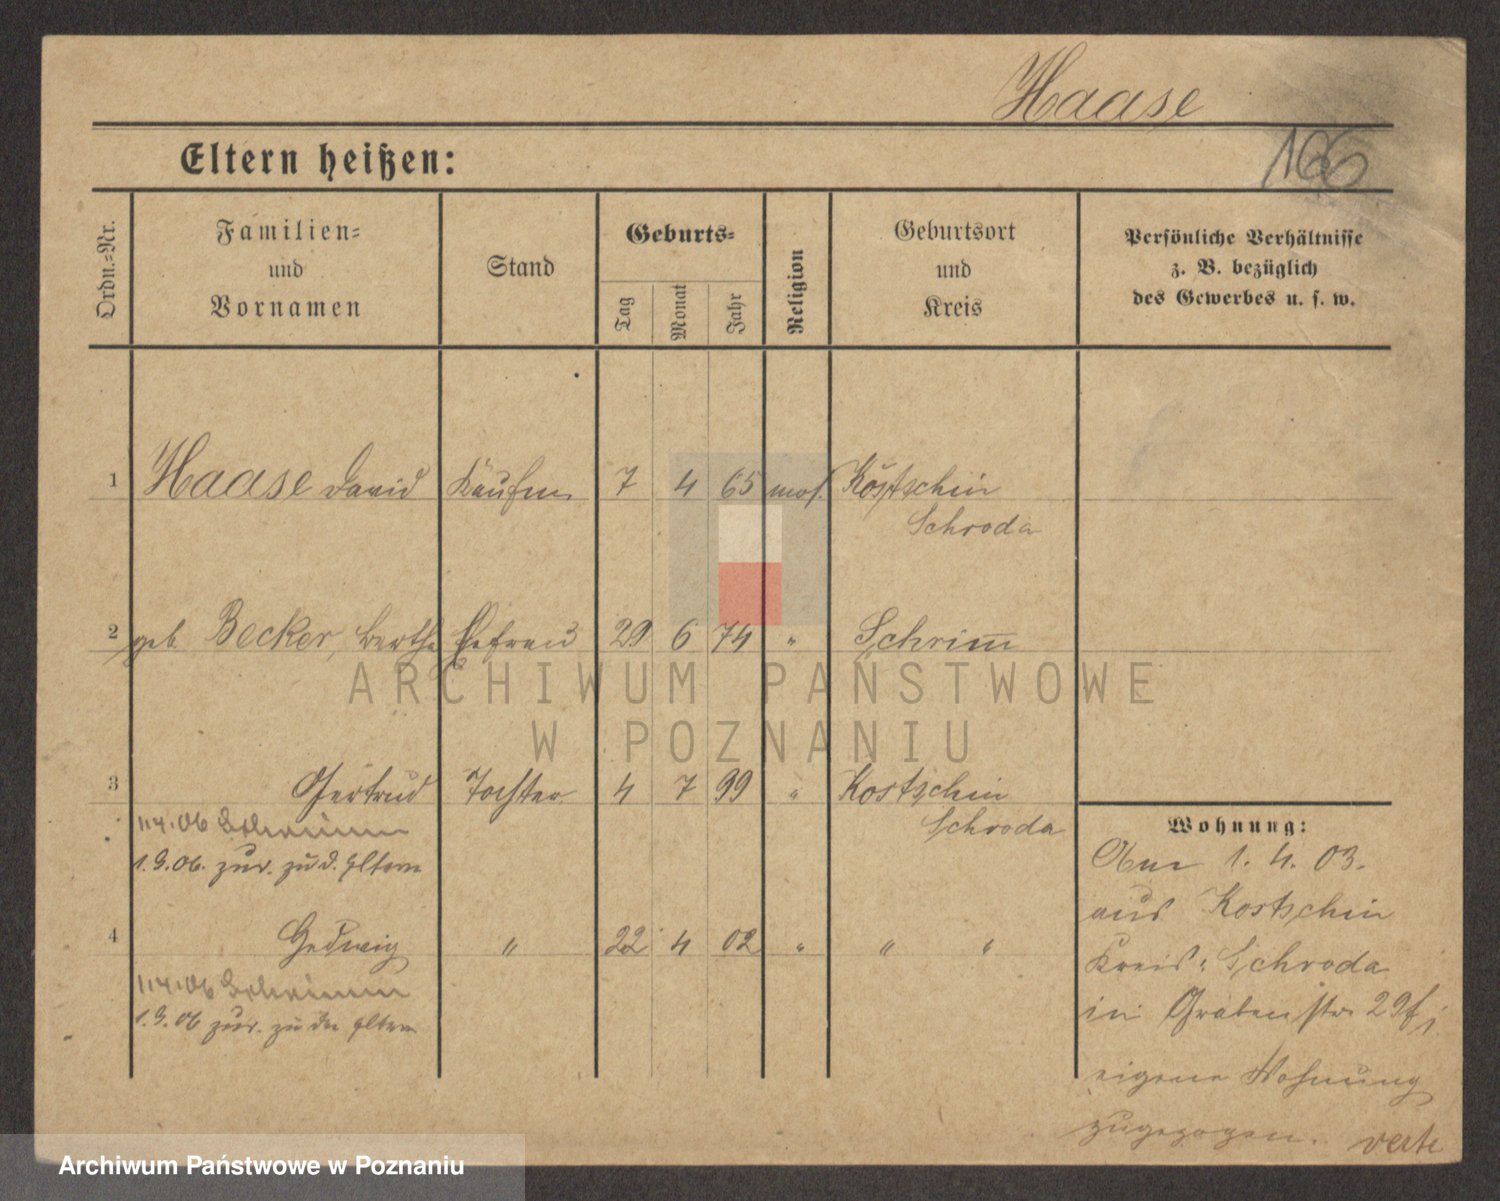 Haase
166
Eltern heißen:
Ordn.-Nr.
Familien-
und
Vornamen
Stand
Geburts-
Tag
Monat
Jahr
Religion
Geburtsort
und
Kreis
Persönliche Verhältnisse
z. B. bezüglich
des Gewerbes u. s. w.
1 Haase David Kaufm. 7 4 65 mos. Kostschin
Schroda
2 geb. Becker, Bertha Ehefrau 29 6 74 " Schrimm
ARCHIWUM PAŃSTWOWE
W POZNANIU
3 Gertrud Tochter 4 7 99 " Kostschin
Schroda
1.4.06
1.9.06. zur. zu d. Eltern
4 Hedwig " 22 4 02 " " "
1.4.06
1.9.06 zur. zu den Eltern
Wohnung:
1. 4. 03.
aus Kostschin
Kreis Schroda
in Grabenstr. 29 f.
eigene Wohnung
zugezogen. verte
Archiwum Państwowe w Poznaniu